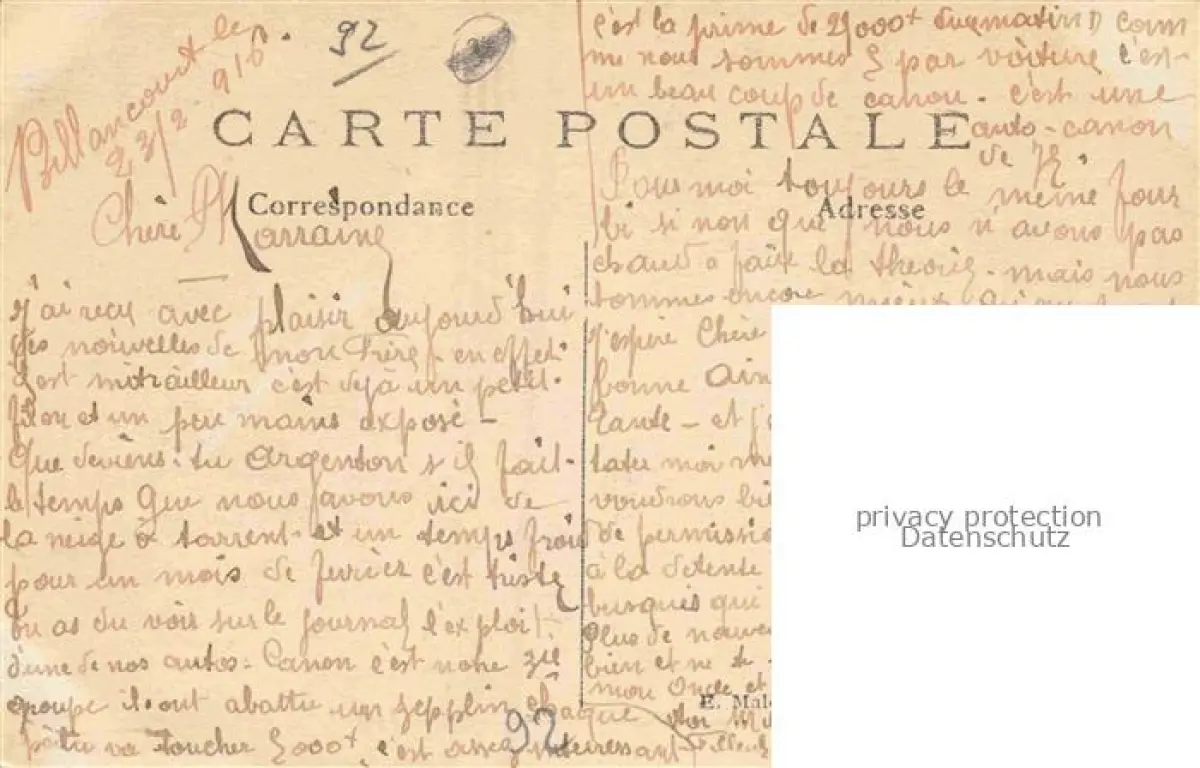 Billancourt le
23/2. 916.
92
CARTE POSTALE
Correspondance
Chère Marraine
J'ai reçu avec plaisir aujourd'hui
des nouvelles de mon Frère - en effet
il est mitrailleur c'est déjà un petit
filon et un peu mains exposé -
Que deviens-tu Argenton s'il fait-
le temps que nous avons ici de
la neige à torrent et un temps froid
pour un mois de fevrier c'est triste
tu as du voir sur le journal l'exploit
d'une de nos autos-Canon c'est notre 3me
groupe ils ont abattu un zepplin chaque
va toucher 5000f c'est assez interessant
92
c'est la prime de 25000f du matin com
me nous sommes 5 par voiture c'est
un beau coup de canon. c'est une
auto-canon
de 75.
Adresse
Pour moi toujours le meme four
bi si non que nous n'avons pas
chaud a faire la theorie. mais nous
sommes encore mieux
J'espère Chère
bonne
Tante - et
voudrons
de permissio
à la detente
busqués qui
Plus de nouve
bien et ne
mon Oncle et
E. Male
privacy protection
Datenschutz